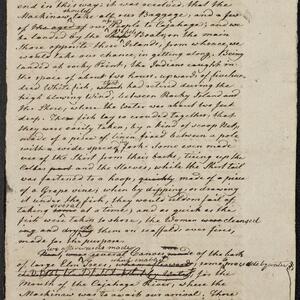 end in this way; it was resolved that the
Mackinaw, take all our Baggage; and a few
of the aged People to Cajahaga; and
be landed by the Boats, on the main
shore opposite these Islands, from whence, we
would take our chance, in getting along, during
landed at rocky Point; the Indians caught in
the space of about two hours, upwards of five hun-
dred White fish, which had retired during the
high blowing Wind, between Rocky Island and
the Shore, where the water was about two feet
deep. The fish lay so crowded together, that
they were easily taken, by a kind of scoop Net,
made of a piece of linen fixed between a pole
with a wide spread fork: some even made
use of the Shirt from their backs, tieing up the
Collar and the Sleeves, while the Shirt tail
was fastened to a hoop, quickly made of a piece
of a Grape vine; when by dipping, or drawing
it under the fish, they would seldom fail of
taking several at a time; and as quick as the
fish were taken to shore, the Women were cleansing
and drying them on scaffolds over fires,
made for the purpose.
several Canoes made of the bark
of large Elm Trees, some proceeded by water
for the
Mouth of the Cajahaga River, where the
Mackinaw was to await our arrival. There